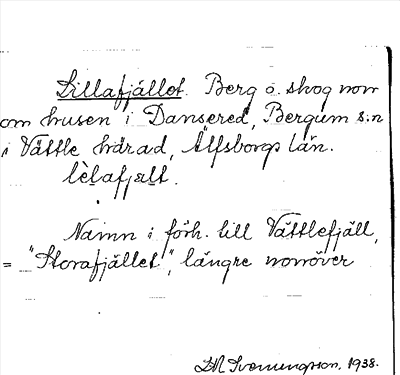 Lillafjället. Berg o. skog norr
om husen i Dansered, Bergum s:n
i Vättle härad, Älfsborgs län.
lèlafjælt.
Namn i förh. till Vättlefjäll,
= "Storafjället", längre norröver
Svenungsson, 1938.